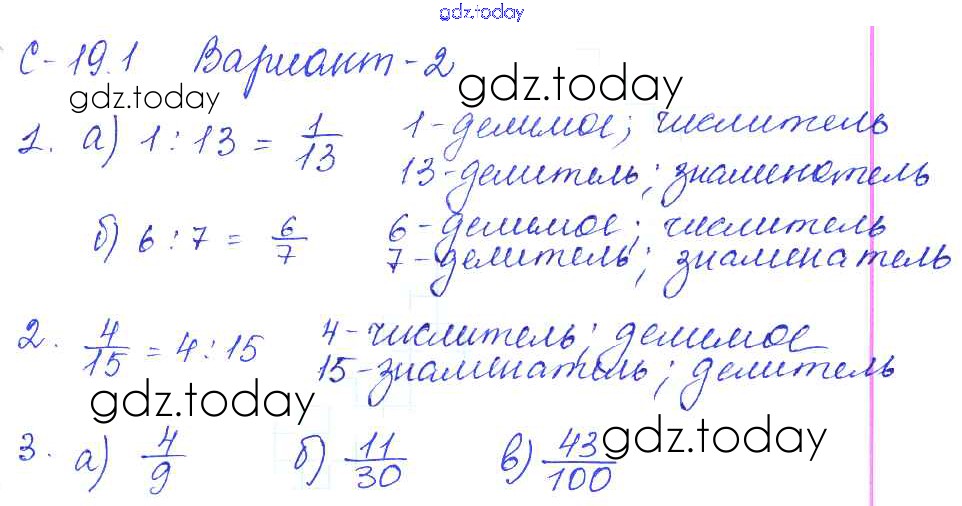 gdz.today
С-19.1 Вариант-2
gdz.today gdz.today
1. а) 1 : 13 = 1/13 1-делимое; числитель
13-делитель; знаменатель
б) 6 : 7 = 6/7 6-делимое; числитель
7-делитель; знаменатель
2. 4/15 = 4 : 15 4-числитель; делимое
15-знаменатель; делитель
gdz.today
3. а) 4/9 б) 11/30 в) 43/100 gdz.today